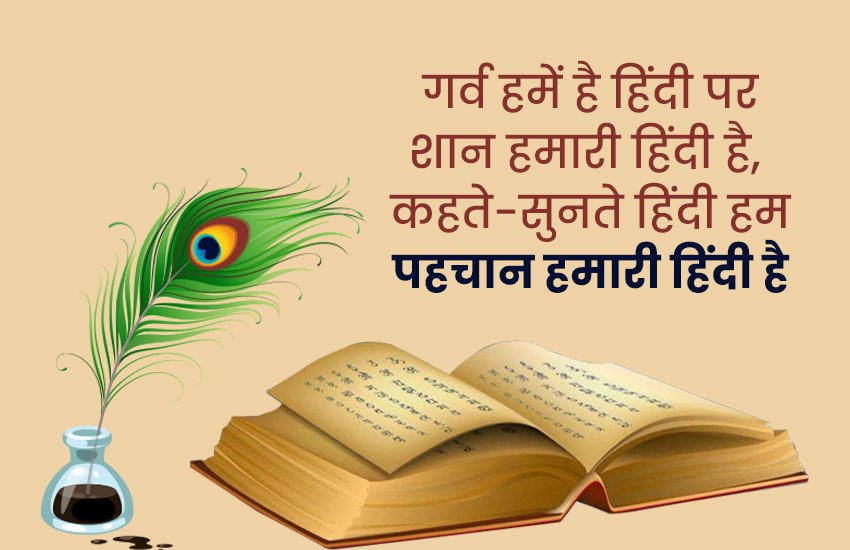 गर्व हमें है हिंदी पर
शान हमारी हिंदी है,
कहते-सुनते हिंदी हम
पहचान हमारी हिंदी है